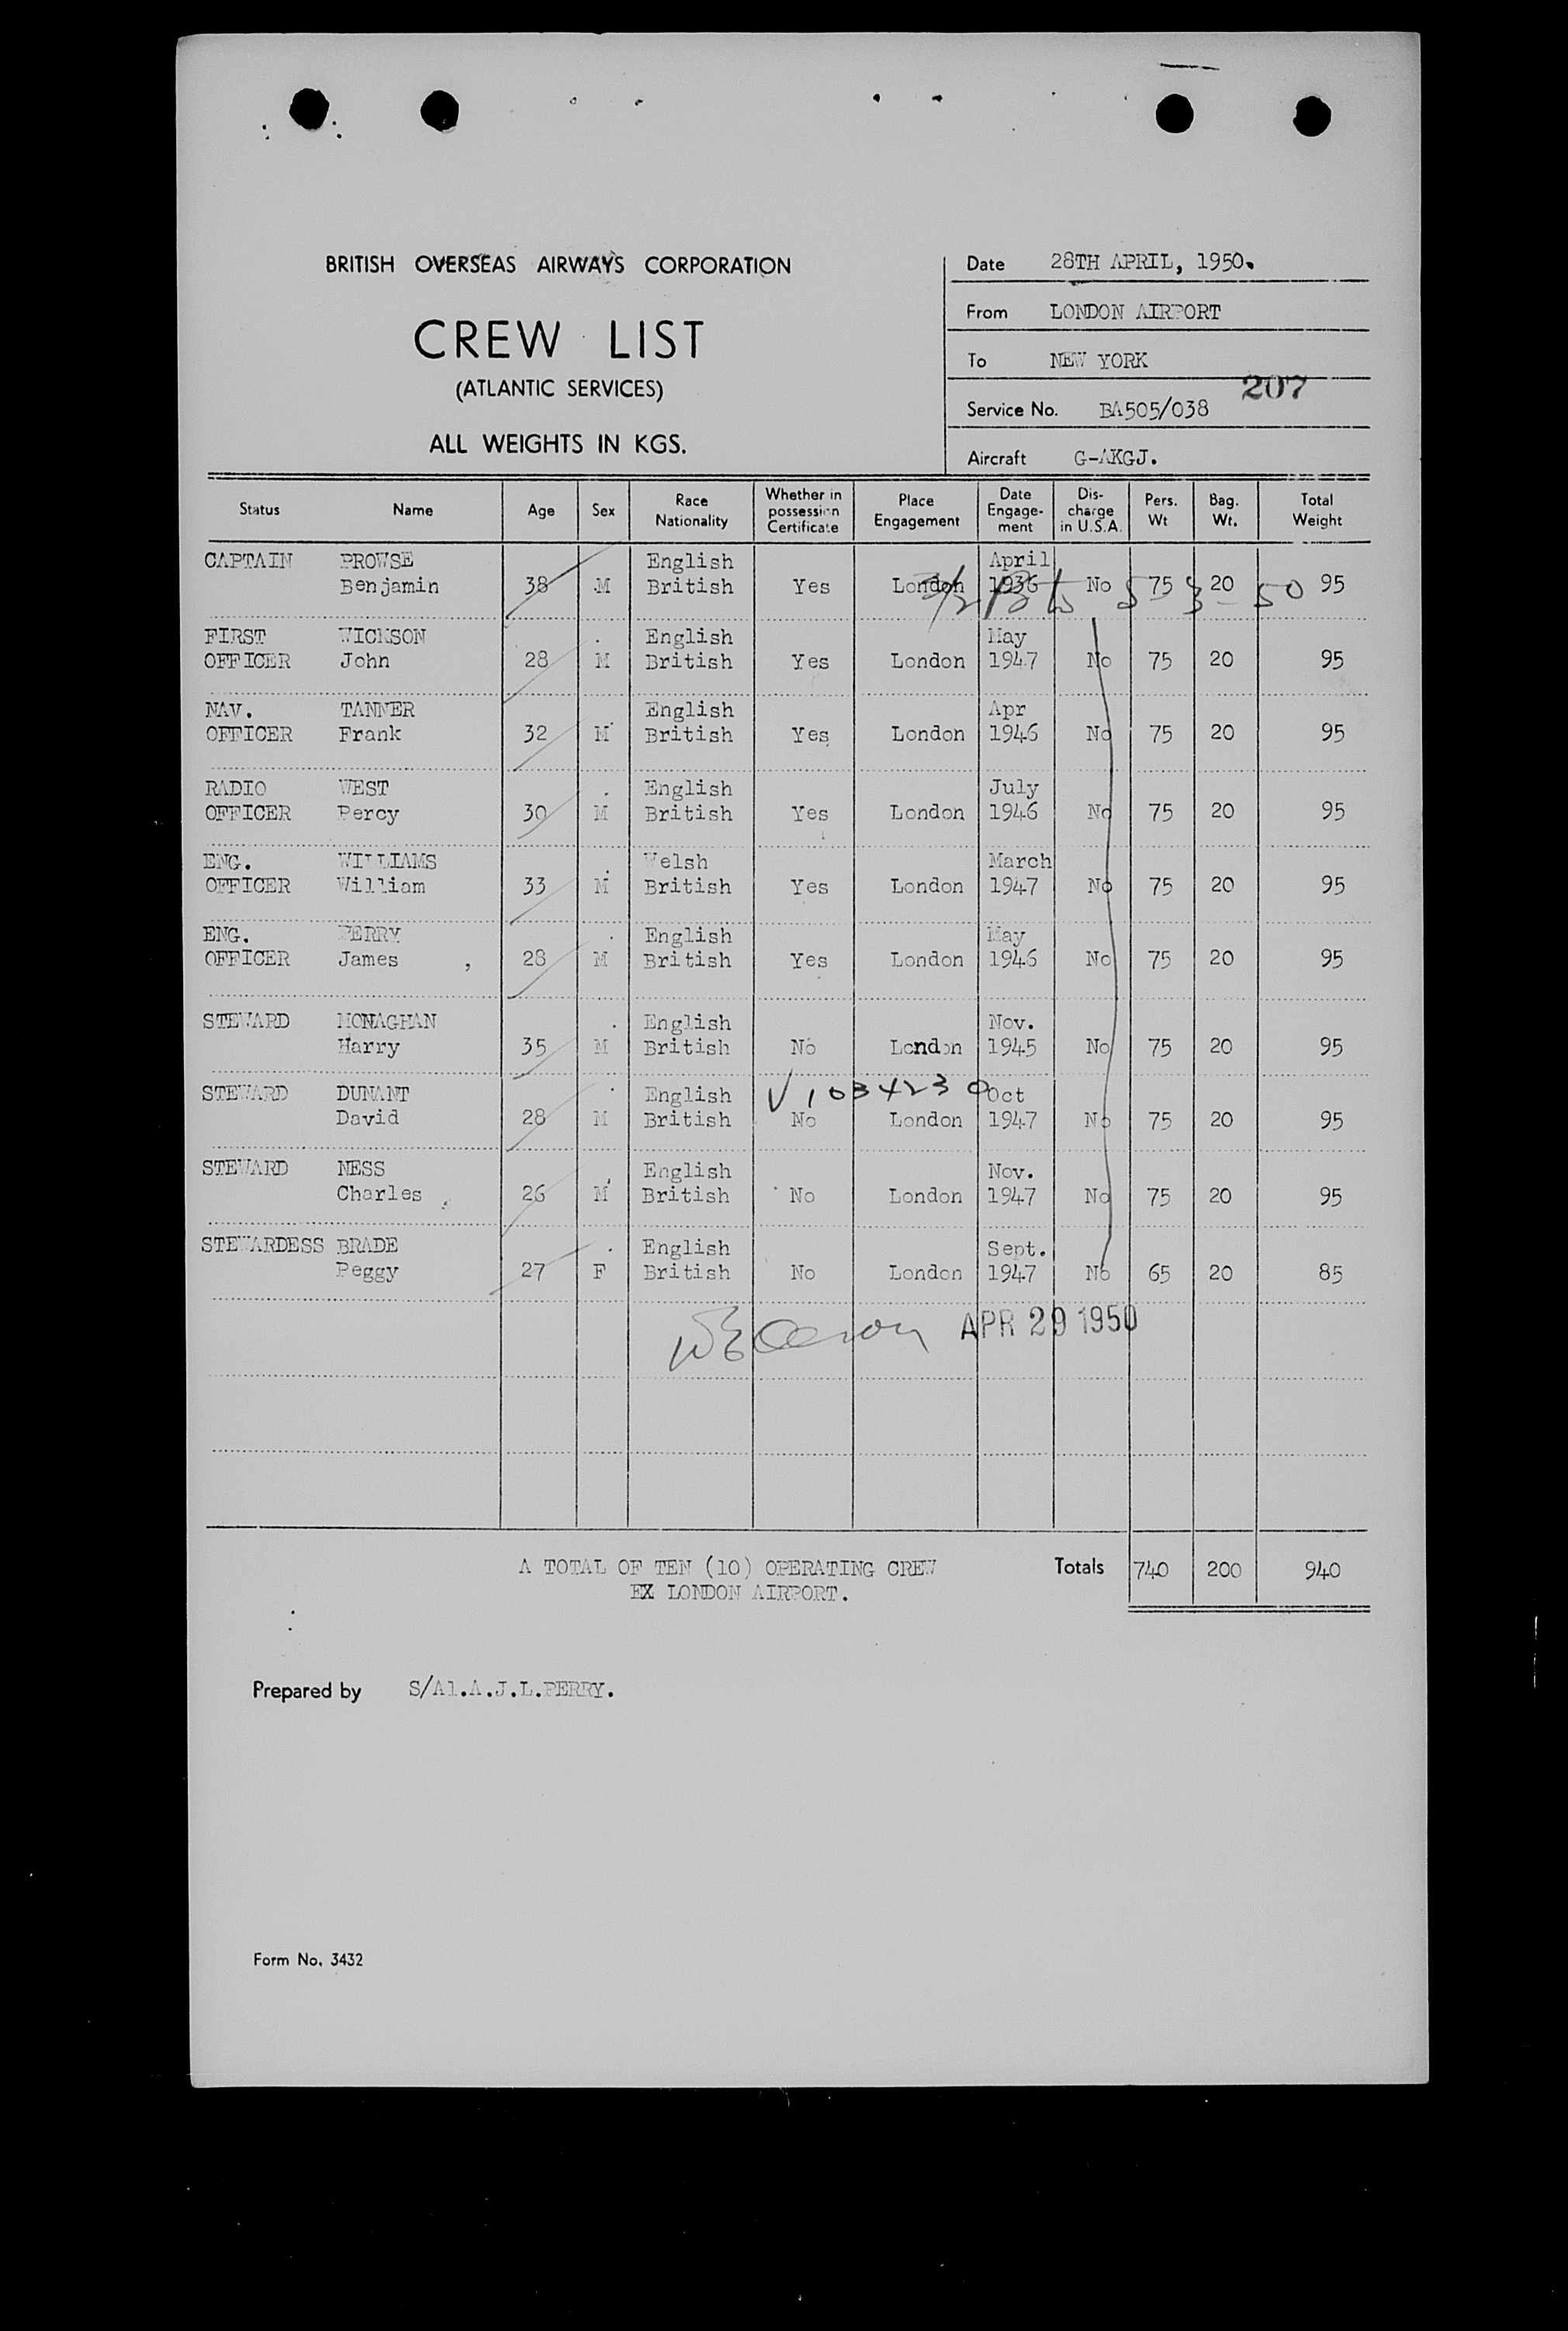 BRITISH OVERSEAS AIRWAYS CORPORATION
CREW LIST
(ATLANTIC SERVICES)
ALL WEIGHTS IN KGS.
Date 28TH APRIL, 1950.
From LONDON AIRPORT
To NEW YORK
207
Service No. BA505/038
Aircraft G-AKGJ.
Status Name Age Sex Race Nationality Whether in possession Certificate Place Engagement Date Engage-ment Dis-charge in U.S.A. Pers. Wt Bag. Wt. Total Weight
CAPTAIN PROWSE English April
Benjamin 38 M British Yes London 1936 No 75 20 95
FIRST WICKSON English May
OFFICER John 28 M British Yes London 1947 No 75 20 95
NAV. TANNER English Apr
OFFICER Frank 32 M British Yes London 1946 No 75 20 95
RADIO WEST English July
OFFICER Percy 30 M British Yes London 1946 No 75 20 95
ENG. WILLIAMS Welsh March
OFFICER William 33 M British Yes London 1947 No 75 20 95
ENG. PERRY English May
OFFICER James , 28 M British Yes London 1946 No 75 20 95
STEWARD MONAGHAN English Nov.
Harry 35 M British No London 1945 No 75 20 95
STEWARD DUNANT English V1034230 Oct
David 28 M British No London 1947 No 75 20 95
STEWARD NESS English Nov.
Charles 26 M British No London 1947 No 75 20 95
STEWARDESS BRADE English Sept.
Peggy 27 F British No London 1947 No 65 20 85
APR 29 1950
A TOTAL OF TEN (10) OPERATING CREW Totals 740 200 940
EX LONDON AIRPORT.
Prepared by S/Al.A.J.L.PERRY.
Form No. 3432